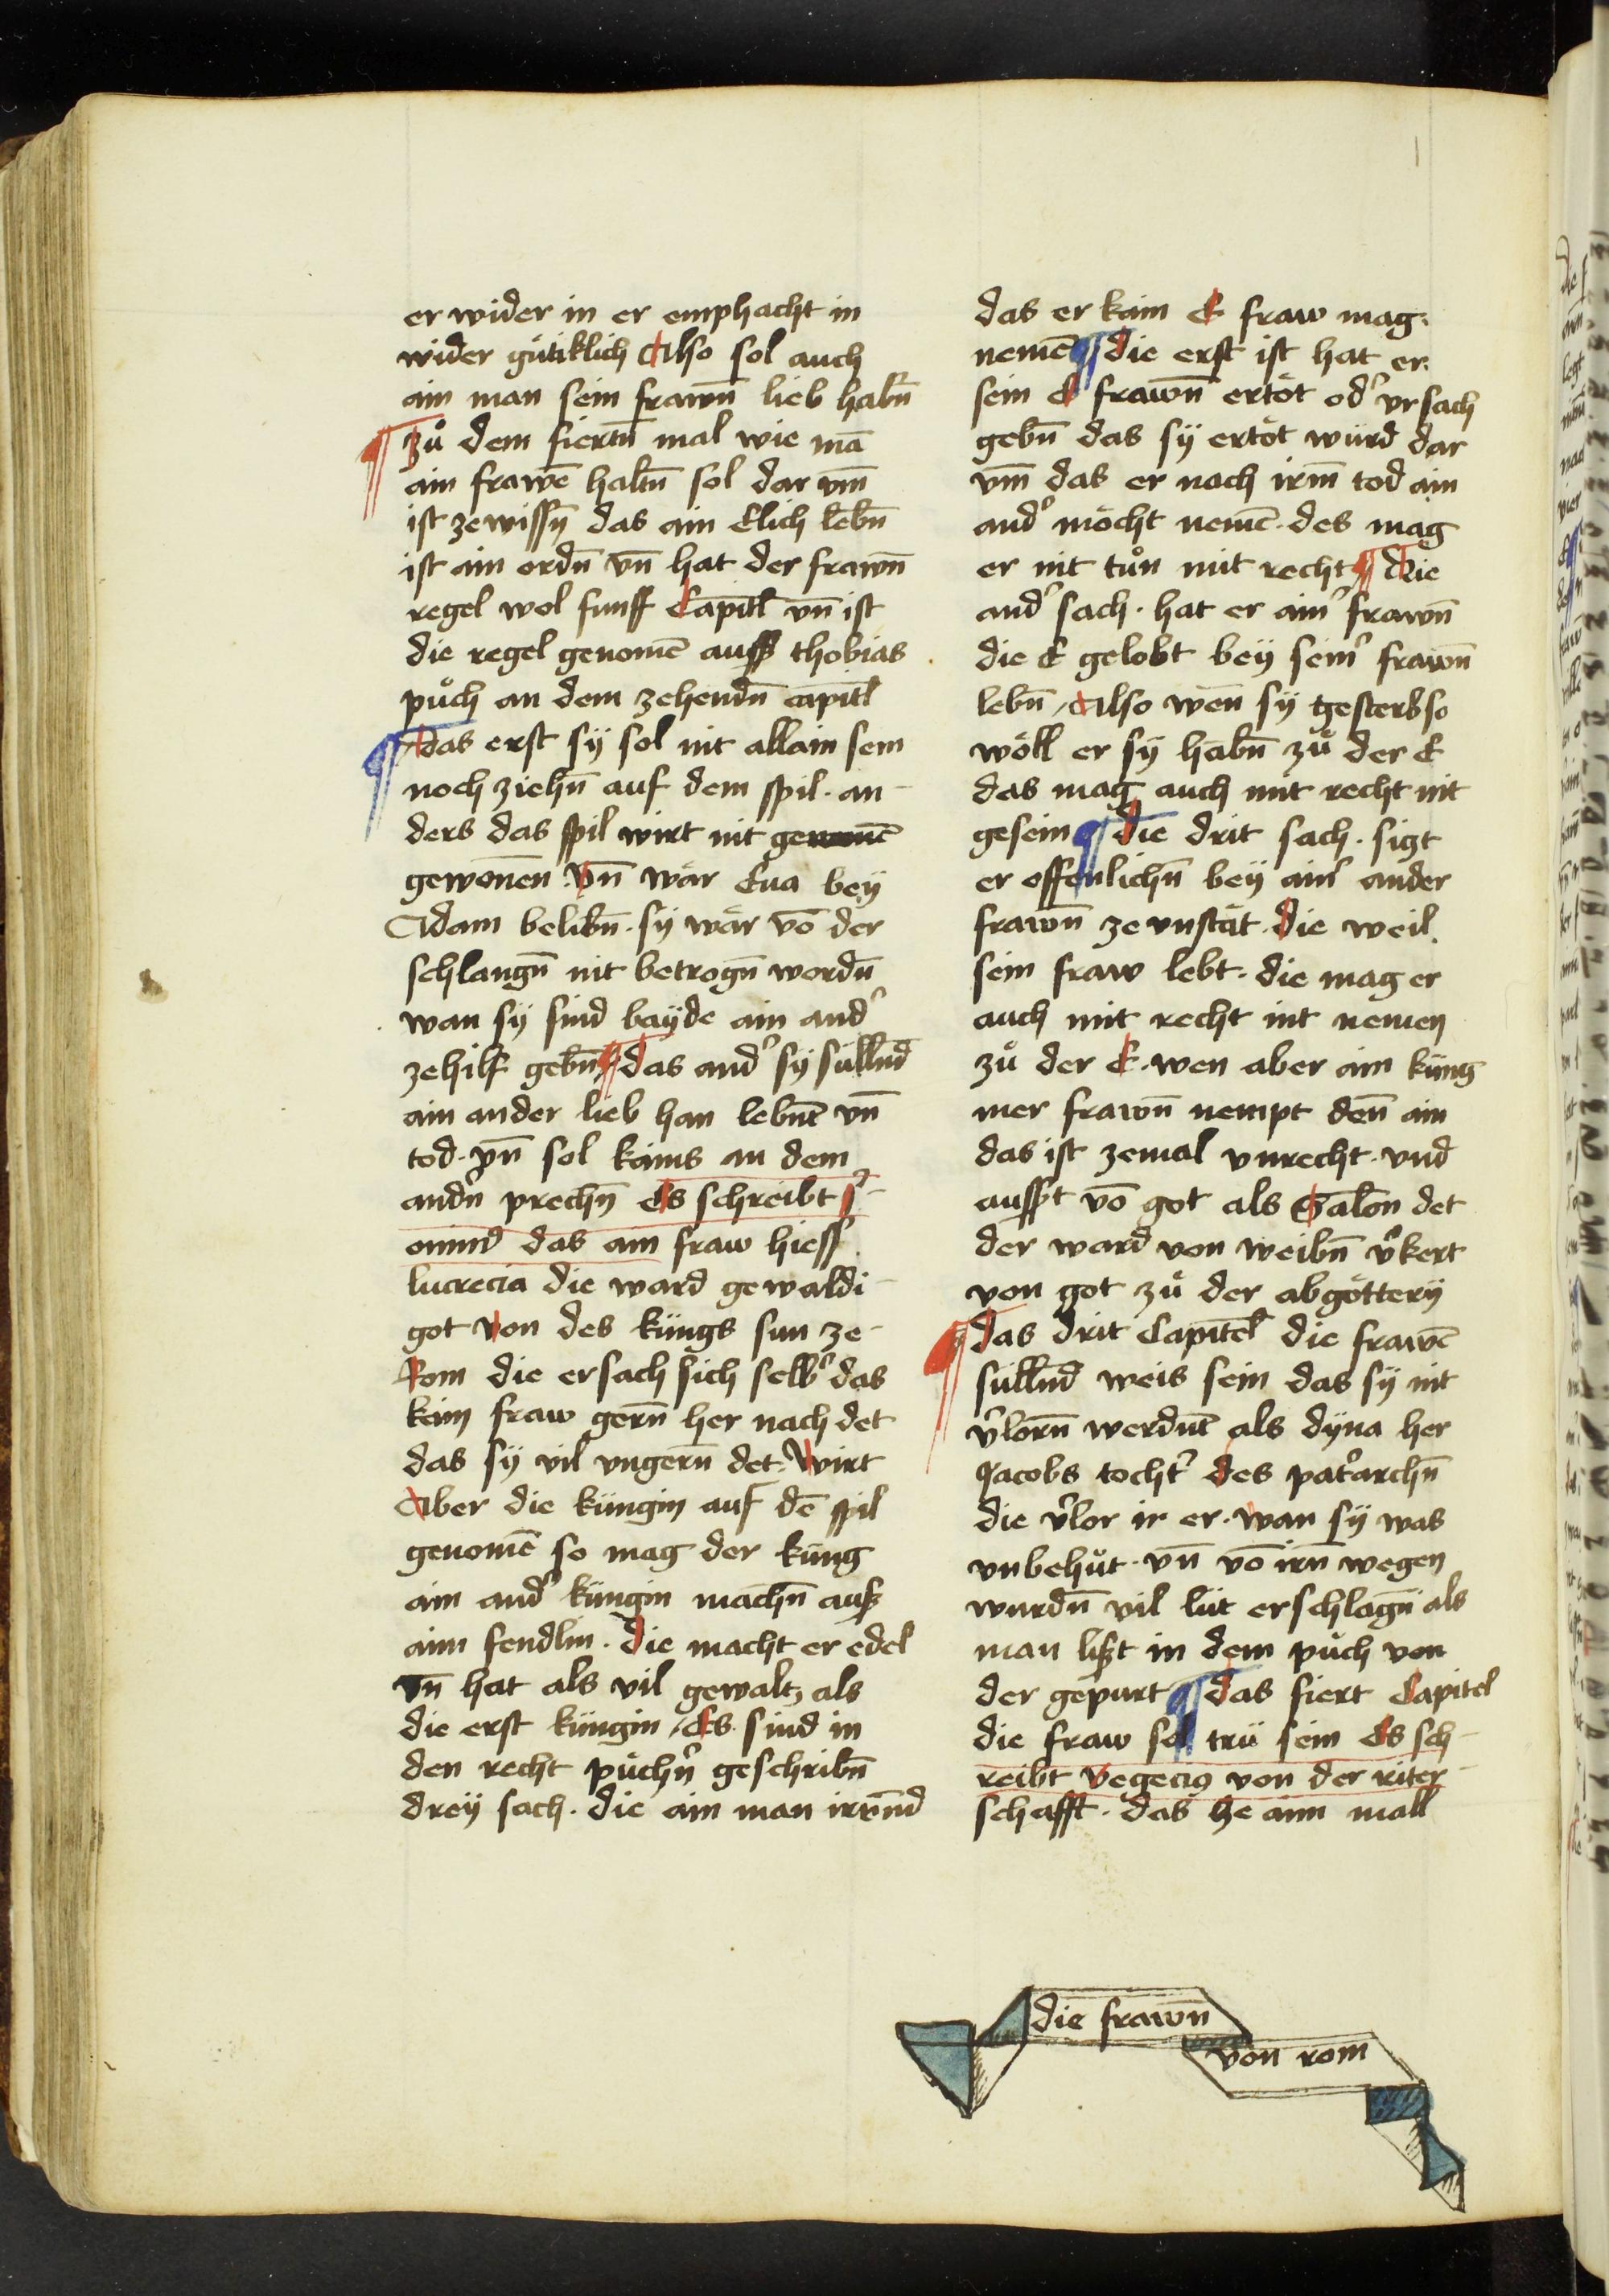 er wider in er emphacht in
wider gütiklich Also sol auch
ain man sein frawn̄ lieb habn̄
¶ zů dem fiertn̄ mal wie mā
ain frawē haltn̄ sol dar vm̄
ist ze wissn̄ das ain Elich lebn̄
ist ain ordn̄ vn̄ hat der frawn̄
regel wol funff Capitl vn̄ ist
die regel genomē auss thobias
půch an dem zehendn̄ capitl
¶ das erst sÿ sol nit allain sein
noch ziehn̄ auf dem spil · an-
ders das spil wirt nit
gewonen · vn̄ wär Eua beÿ
Adam belibn̄ · sÿ wär vō der
schlangn̄ nit betrogn̄ wordn̄
wan sÿ sind baÿde ain and͛
ze hilf gebn̄ ¶ das and͛ sÿ süllnd
ain ander lieb han lebnt̄ vn̄
tod · vn̄ sol kains an dem
andn͛ prechn̄ Es schreibt
ouind das ain fraw hiess
lucrecia die ward gewaldi-
got von des küngs sun ze-
Rom die ersach sich selb͛ das
kain fraw gern̄ her nach det
das sÿ vil vngern̄ det · Wirt
Aber die küngin auf dē spil
genomē so mag der küng
ain and͛ küngin machn̄ auß
aim fendlin · die macht er edel
vn̄ hat als vil gewaltz als
die erst küngin / Es sind in
den recht půchn͛ geschribn̄
dreÿ sach · die ain man irrn̄d
das er kain E fraw mag
nemē ¶ die erst ist hat er
sein E frawn̄ ertöt od͛ vrsach
gebn̄ das sÿ ertöt würd dar
vm̄ das er nach irm̄ tod ain
and͛ möcht nemē · des mag
er nit tůn mit recht ¶ Die
and͛ sach · hat er ain͛ frawn̄
die E gelobt beÿ sein͛ frawn̄
lebn̄ / Also wen̄ sÿ gesterb so
wöll er sÿ habn̄ zů der E
das mag auch mit recht nit
gesein ¶ die drit sach · sizt
er offenlichn̄ beÿ ain͛ ander
frawn̄ ze vnstät · die weil
sein fraw lebt · die mag er
auch mit recht nit nemen
zů der E · wen aber ain küng
mer frawn̄ nempt den̄ ain
das ist zemal vnrecht · vnd
ausspt vō got als Salon̄ det
der ward von weibn̄ v͛kert
von got zů der abgötterÿ
¶ das drit Capitel die frawē
süllnd weis sein das sÿ nit
v͛lorn̄ werdnt̄ als dÿna her
Jacobs tocht͛ des pat͛archn̄
die v͛lor ir er · wan sÿ was
vnbehůt · vn̄ vō irn̄ wegen
wurdn̄ vil lüt erschlagn̄ als
man lißt in dem půch von
der gepurt ¶ das fiert Capitel
die fraw sol trü sein Es sch-
reibt vegecius von der riter-
schafft · das ze aim mall
die frawn̄
von rom